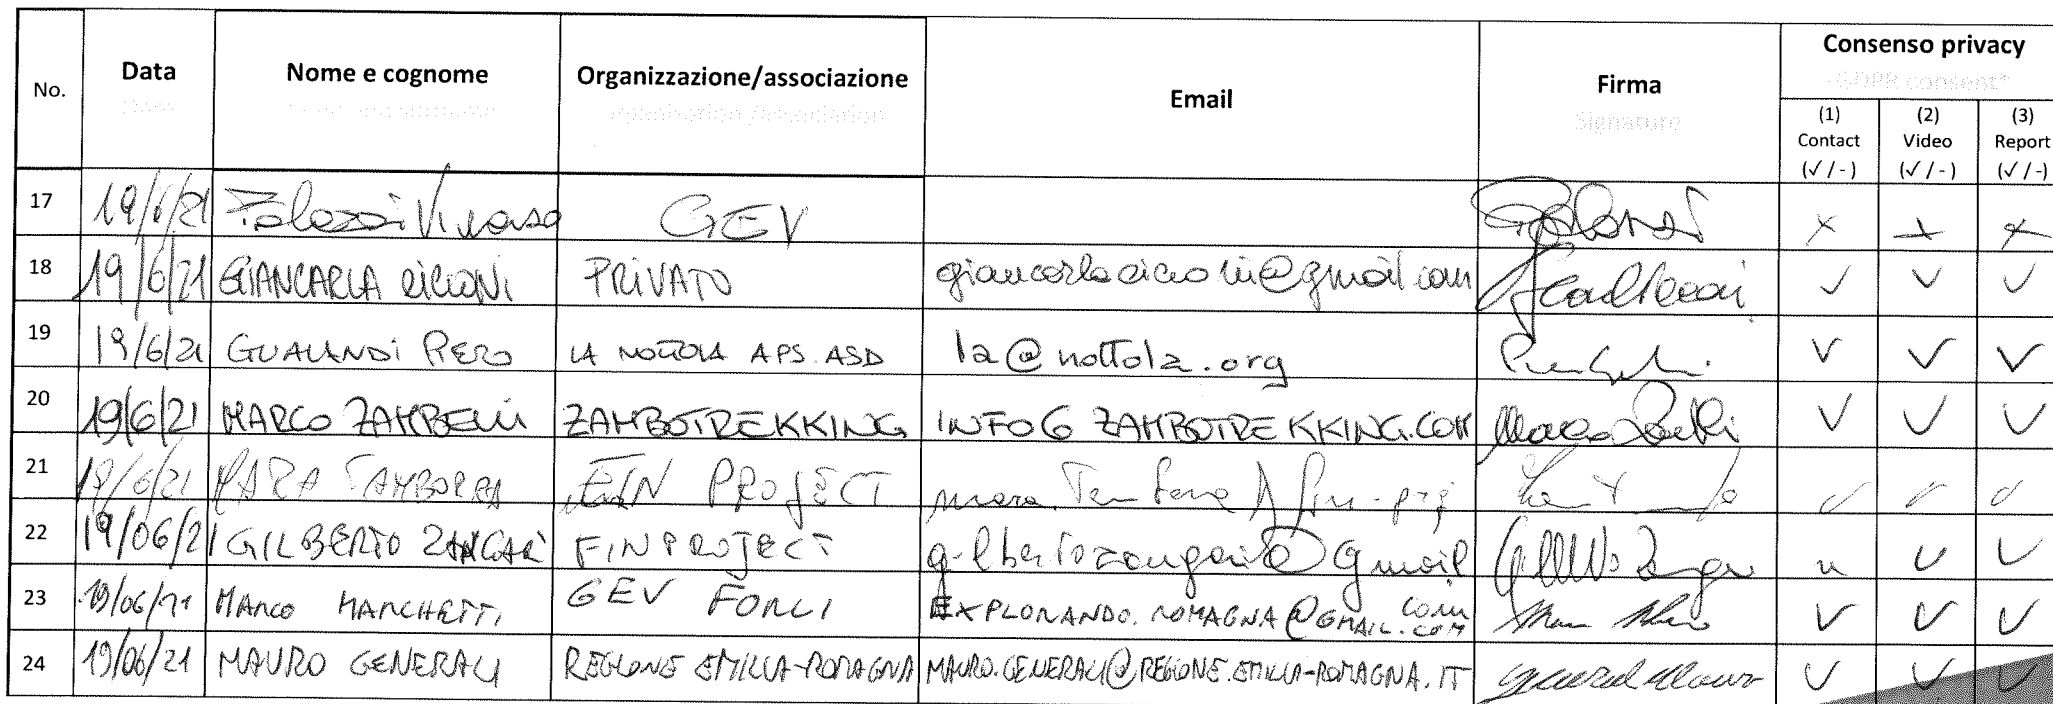 No. Data Nome e cognome Organizzazione/associazione Email Firma Consenso privacy
GDPR consent*
Signature
(1) Contact (√ / -) (2) Video (√ / -) (3) Report (√ / -)
17 19/6/21 GEV x x x
18 19/6/21 GIANCARLA PRIVATO ✓ ✓ ✓
19 19/6/21 GUALANDI PIERO LA NOTTOLA APS. ASD la@nottola.org ✓ ✓ ✓
20 19/6/21 MARCO ZAMBELLI ZAMBOTREKKING INFO@ZAMBOTREKKING.COM ✓ ✓ ✓
21 19/6/21 MARA TAMBORRA PROJECT ✓ ✓ ✓
22 19/06/21 GILBERTO ZANGARI FINPROJECT gilbertozangari@Gmail ✓ ✓
com
23 19/06/21 MARCO MARCHETTI GEV FORLI EXPLORANDO.ROMAGNA@GMAIL.COM ✓ ✓ ✓
24 19/06/21 MAURO GENERALI REGIONE EMILIA-ROMAGNA MAURO.GENERALI@REGIONE.EMILIA-ROMAGNA.IT ✓ ✓ ✓